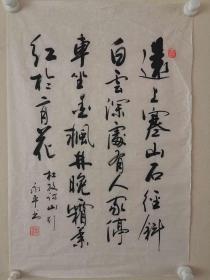 遠上寒山石徑斜
白雲深處有人家停
車坐愛楓林晚霜葉
紅於二月花
杜牧詩山行
永平书